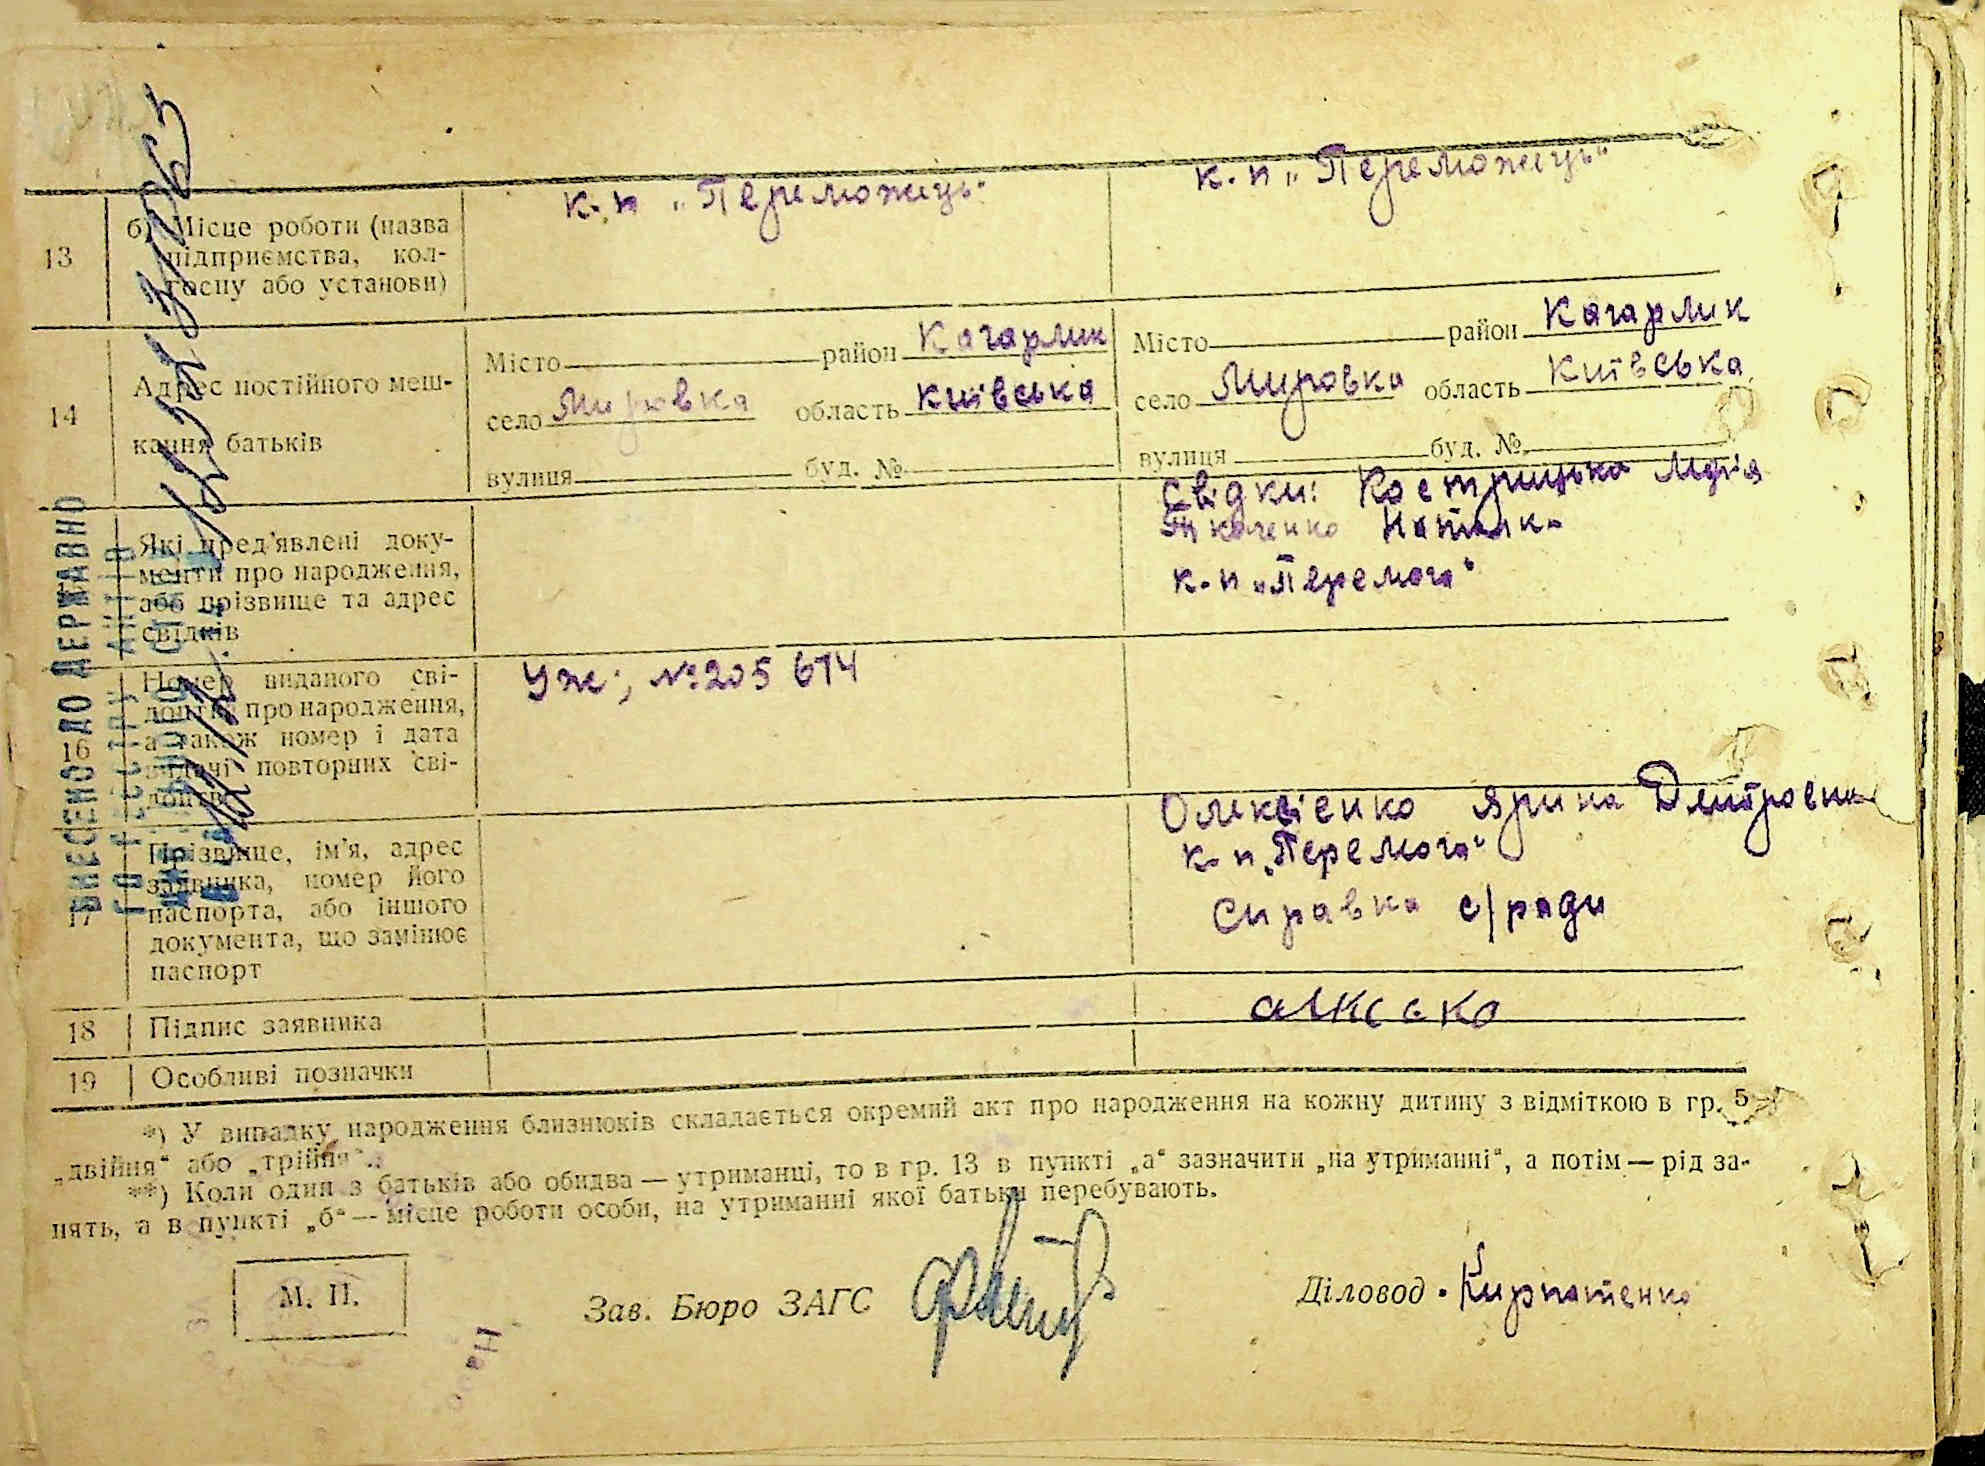 13
б) Місце роботи (назва
підприємства, кол-
госпу або установи)
к-п „Переможець“
к-п „Переможець“
14
Адрес постійного меш-
кання батьків
Місто район Кагарлик
село Мировка область Київська
вулиця буд. №
Місто район Кагарлик
село Мировка область Київська
вулиця буд. №
Які пред'явлені доку-
менти про народження,
або прізвище та адрес
свідків
Свідки: Лідія
Ткаченко
к-п „Перемога“
16
Номер виданого сві-
доцтва про народження,
а також номер і дата
видачі повторних сві-
доцтв
УЖ; № 205 674
17
Прізвище, ім'я, адрес
заявника, номер його
паспорта, або іншого
документа, що замінює
паспорт
Ярина Дмитровна
к-п „Перемога“
Справка с/ради
18
Підпис заявника
19
Особливі позначки
*) У випадку народження близнюків складається окремий акт про народження на кожну дитину з відміткою в гр. 5
„двійня“ або „трійня“.
**) Коли один з батьків або обидва — утриманці, то в гр. 13 в пункті „а“ зазначити „на утриманні“, а потім — рід за-
нять, а в пункті „б“ — місце роботи особи, на утриманні якої батьки перебувають.
М. П.
Зав. Бюро ЗАГС
Діловод
ВНЕСЕНО ДО ДЕРЖАВНО